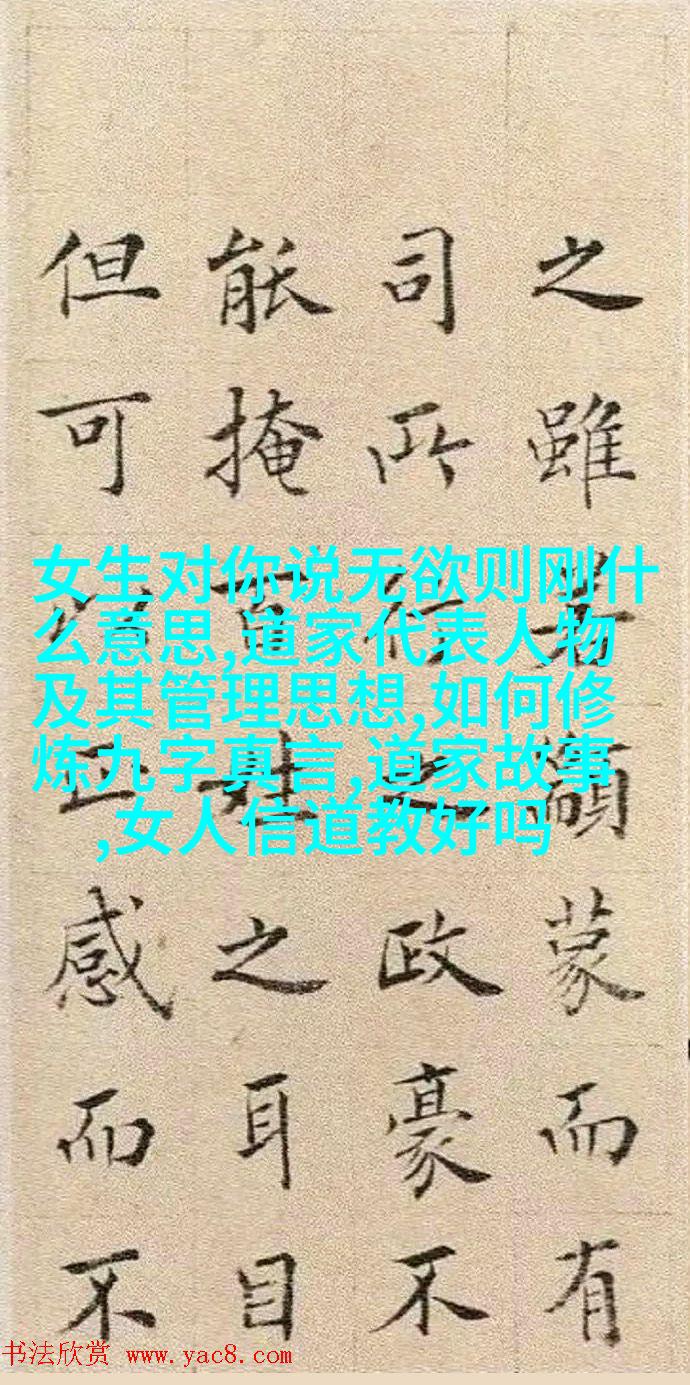 之雖者顓蒙而有
司所行之政豪不
能掩百姓之耳目
但可以正感而不
女生对你说无欲则刚什
么意思,道家代表人物
及其管理思想,如何修
炼九字真言,道家故事
,女人信道教好吗
书法欣赏 www.yac8.com